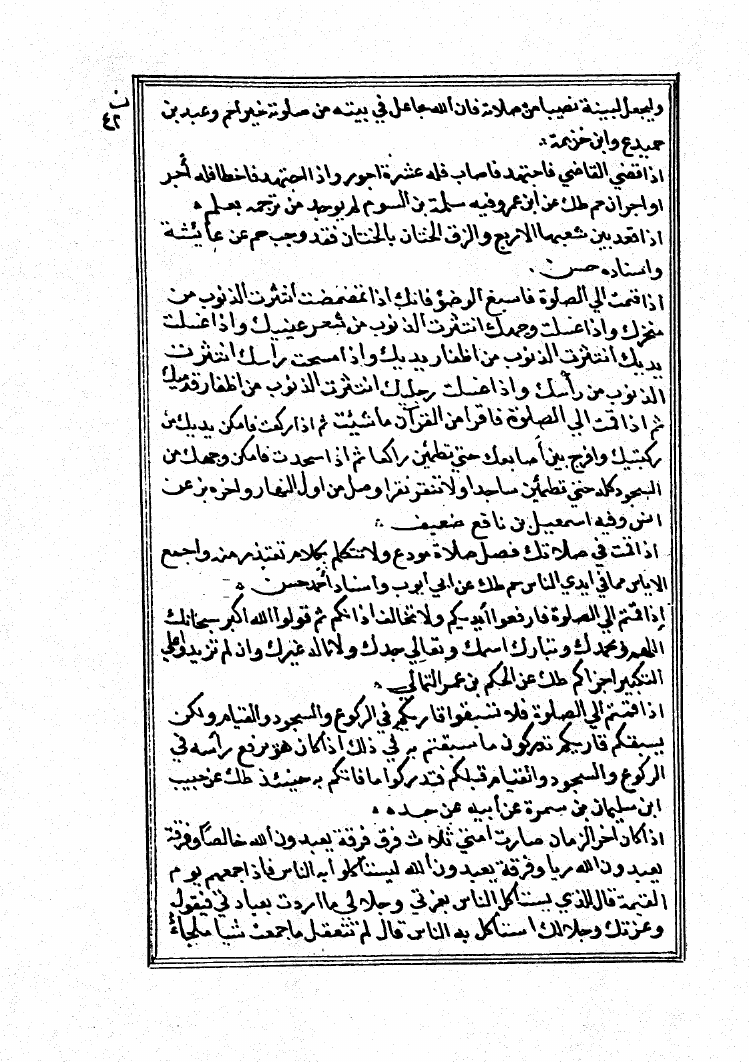 ن
٤٢
وليجعل لبيته نصيبا من صلاته فان الله جاعل في بيته من صلوته خيرا حم وعبد بن
حميد ع وابن خزيمة
اذا قضي القاضي فاجتهد فاصاب فله عشرة اجور واذا اجتهد فاخطا فله أجر
او اجران حم طك عن ابن عمر وفيه سلمة بن السوم لم يوجد من ترجمه بعلم
اذا قعد بين شعبها الاربع والزق الختان بالختان فقد وجب حم عن عايشة
واسناده حسن
اذا قمت الي الصلوة فاسبغ الوضؤ فانك اذا تمضمضت انتثرت الذنوب من
منخرك واذا غسلت وجهك انتثرت الذنوب من شعر عينيك واذا غسلت
يديك انتثرت الذنوب من اظفار يديك واذا مسحت رأسك انتثرت
الذنوب من رأسك واذا غسلت رجليك انتثرت الذنوب من اظفار قدميك
ثم اذا قمت الي الصلوة فاقرا من القرآن ما شيئت ثم اذا ركعت فامكن يديك من
ركبتيك وافرج بين أصابعك حتي تطمئن راكعا ثم اذا سجدت فامكن وجهك من
السجود كله حتي تطمئن ساجدا ولا تنقر نقرا وصل من اول النهار واخره بز عن
انس وفيه اسمعيل بن نافع ضعيف
اذا قمت في صلاتك فصل صلاة مودع ولا تتكلم بكلام تعتذر منه واجمع
الاياس مما في ايدي الناس حم طك عن ابي ايوب واسناد أحمد حسن
إذا قمتم الي الصلوة فارفعوا أيديكم ولا تخالف اذانكم ثم قولوا الله اكبر سبحانك
اللهم وبحمدك وتبارك اسمك وتعالي جدك ولا اله غيرك وان لم تزيدوا علي
التكبير اجزاكم طك عن الحكم بن عمير الثمالي
اذا قمتم الي الصلوة فلا تسبقوا قاريكم في الركوع والسجود والقيام ولكن
يسبقكم قاريكم تدركون ما سبقتم به في ذلك اذا كان هو يرفع رأسه في
الركوع والسجود والقيام قبلكم فتدركوا ما فاتكم به حينئذ طك عن حبيب
ابن سليمان بن سمرة عن أبيه عن جده
اذا كان اخر الزمان صارت امتي ثلاث فرق فرقة يعبدون الله خالصا وفرقة
يعبدون الله ريا وفرقة يعبدون الله ليستاكلوا به الناس فاذا جمعهم يوم
القيمة قال للذي يستاكل الناس بعزتي وجلالي ما اردت بعبادتي فيقول
وعزتك وجلالك استاكل به الناس قال لم تنفعك ما جمعت شيا